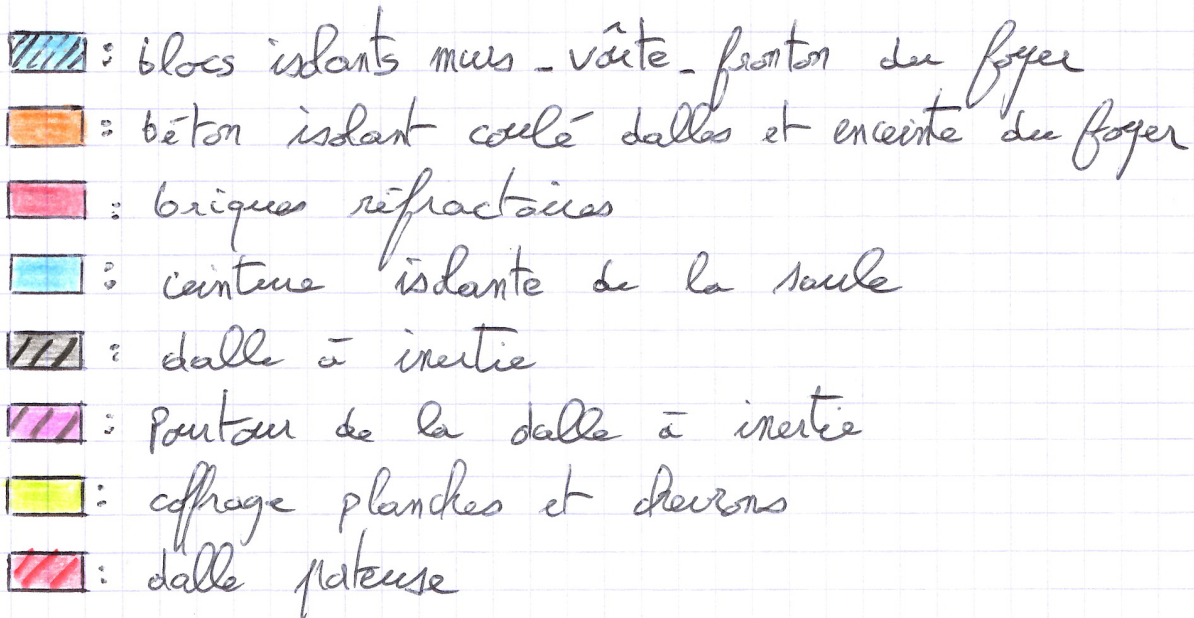 : blocs isolants murs - voûte - fronton du foyer
: béton isolant coulé dalles et enceinte du foyer
: briques réfractaires
: ceinture isolante de la saule
: dalle à inertie
: Pourtour de la dalle à inertie
: coffrage planches et chevrons
: dalle porteuse